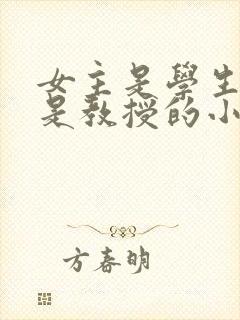 女主是學生
是教授的小
方春明